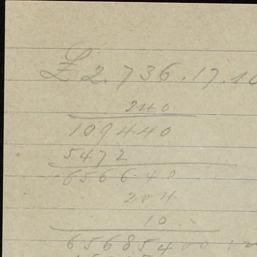 £ 2.736.17.10
240
109440
5472
656640
204
10
656854